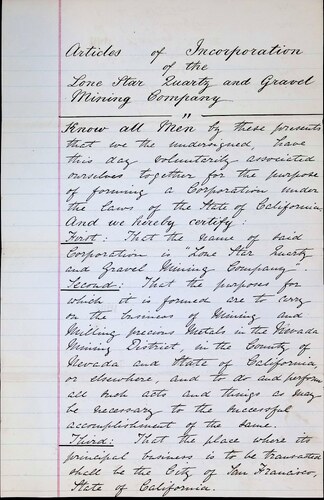 Articles of Incorporation
of the
Lone Star Quartz and Gravel
Mining Company
"
Know all Men by these presents
that we the undersigned, have
this day volunterily associated
ourselves together for the purpose
of forming a Corporation under
the laws of the State of California
And we hereby certify:
First: That the name of said
Corporation is "Lone Star Quartz
and Gravel Mining Company".
Second: That the purposes for
which it is formed are to carry
on the business of Mining and
Milling precious Metals in the Nevada
Mining District, in the County of
Nevada and State of California,
or elsewhere, and to do and perform
all such acts and things as may
be necessary to the successful
accomplishment of the same.
Third: That the place where its
principal business is to be transacted
shall be the City of San Francisco,
State of California.